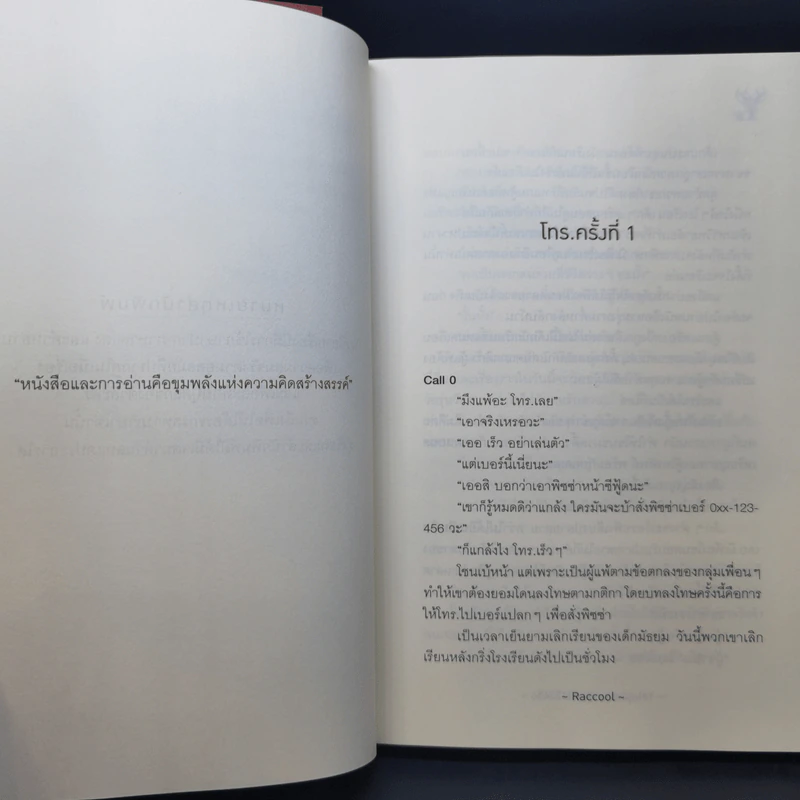 “หนังสือและการอ่านคือขุมพลังแห่งความคิดสร้างสรรค์”
โทร.ครั้งที่ 1
Call 0
“มึงแพ้อะ โทร.เลย”
“เอาจริงเหรอวะ”
“เออ เร็ว อย่าเล่นตัว”
“แต่เบอร์นี้เนี่ยนะ”
“เออสิ บอกว่าเอาพิซซ่าหน้าซีฟู้ดนะ”
“เขาก็รู้หมดดิว่าแกล้ง ใครมันจะบ้าสั่งพิซซ่าเบอร์ 0xx-123-
456 วะ”
“ก็แกล้งไง โทร.เร็ว ๆ”
โซนเบ้หน้า แต่เพราะเป็นผู้แพ้ตามข้อตกลงของกลุ่มเพื่อน ๆ
ทำให้เขาต้องยอมโดนลงโทษตามกติกา โดยบทลงโทษครั้งนี้คือการ
ให้โทร.ไปเบอร์แปลก ๆ เพื่อสั่งพิซซ่า
เป็นเวลาเย็นยามเลิกเรียนของเด็กมัธยม วันนี้พวกเขาเลิก
เรียนหลังกริ่งโรงเรียนดังไปเป็นชั่วโมง
~ Raccool ~